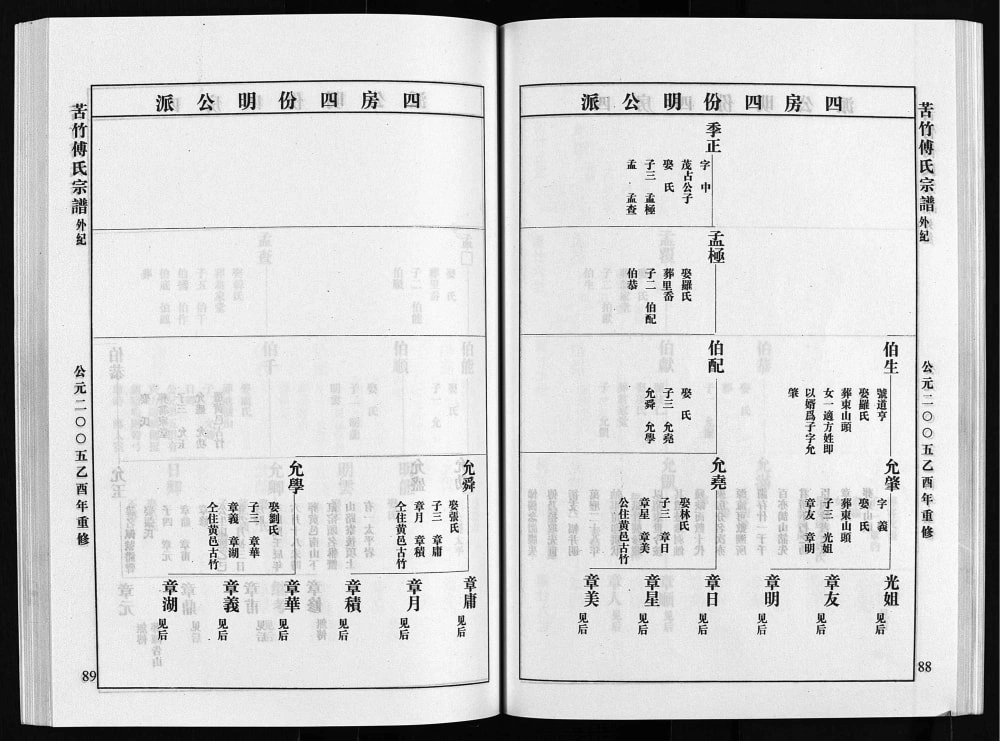 苦竹傅氏宗譜 外紀
公元二〇〇五乙酉年重修
88
四房四份明公派
季正
字 中
茂占公子
娶 氏
子三 孟極
孟 孟查
孟極
娶羅氏
葬里番
子二 伯配
伯恭
伯生
號道亨
娶羅氏
葬東山頭
女一適方姓即
以婿爲子字允
肇
伯配
娶 氏
子三 允堯
允舜 允學
允肇
字 義
娶 氏
葬東山頭
子三 光姐
章友 章明
允堯
娶林氏
子三 章日
章星 章美
公住黄邑古竹
光姐 见后
章友 见后
章明 见后
章日 见后
章星 见后
章美 见后
四房四份明公派
允舜
娶張氏
子三 章庸
章月 章積
仝住黄邑古竹
允學
娶劉氏
子三 章華
章義 章湖
仝住黄邑古竹
章庸 见后
章月 见后
章積 见后
章華 见后
章義 见后
章湖 见后
苦竹傅氏宗譜 外紀
公元二〇〇五乙酉年重修
89